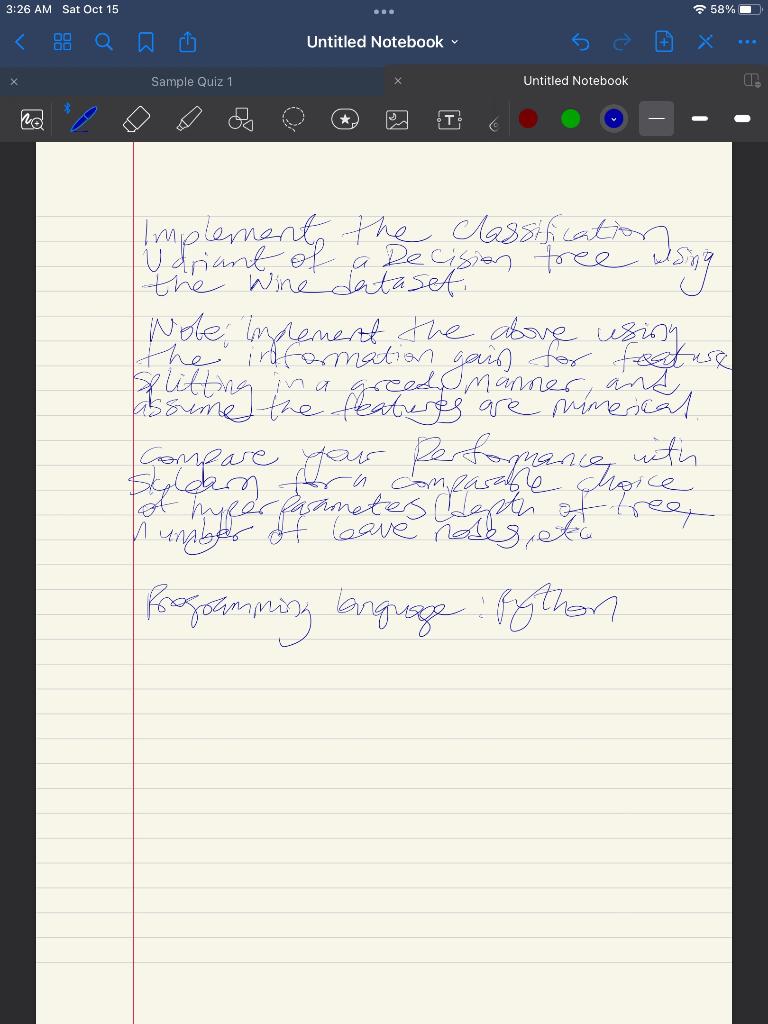 3:26 AM Sat Oct 15
58%
Untitled Notebook
Sample Quiz 1
Untitled Notebook
T
Implement the Classification
Variant of a Decision tree using
the Wine dataset.
Note: Implement the above using
the information gain for feature
splitting in a greedy manner, and
assume the features are numerical.
Compare your Performance with
Sklearn for a comparable choice
of hyperparameters (depth of tree,
number of leave nodes, etc
Programming language : Python